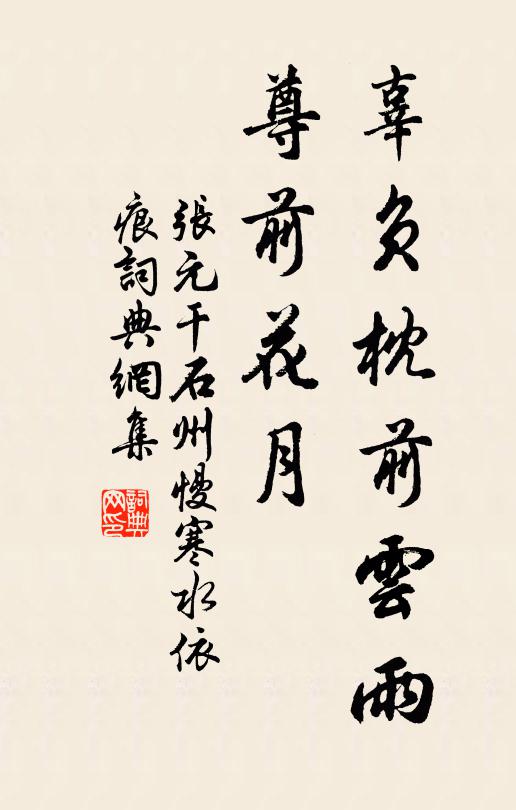 辜負枕前雲雨
尊前花月
張元干石州慢寒水依
痕詞典網集
詞典
网印